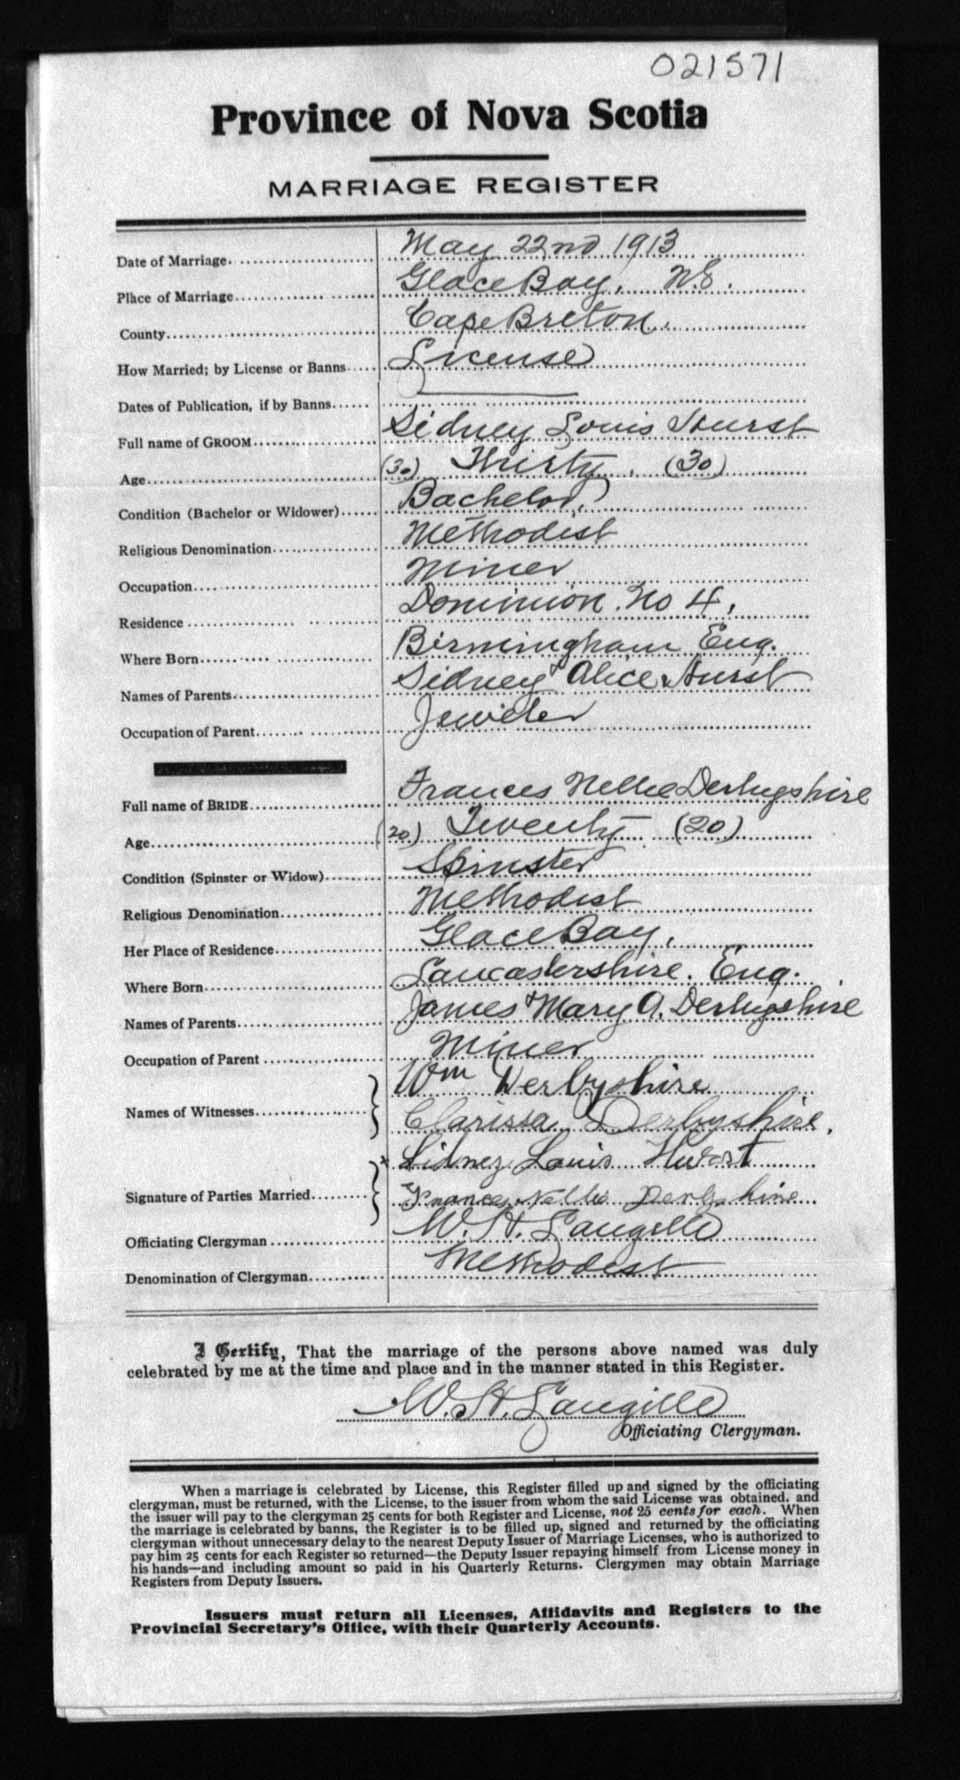 021571
Province of Nova Scotia
MARRIAGE REGISTER
Date of Marriage. May 22nd 1913
Place of Marriage Glace Bay, N.S.
County Cape Breton,
How Married; by License or Banns License
Dates of Publication, if by Banns
Full name of GROOM Sidney Louis Hurst
Age (30) Thirty. (30)
Condition (Bachelor or Widower) Bachelor,
Religious Denomination Methodist
Occupation Miner
Residence Dominion. No 4,
Where Born Birmingham Eng.
Names of Parents Sidney & Alice Hurst
Occupation of Parent Jeweler
Full name of BRIDE Frances Nellie Derbyshire
Age (20) Twenty (20)
Condition (Spinster or Widow) Spinster
Religious Denomination Methodist
Her Place of Residence Glace Bay,
Where Born Lancastershire. Eng.
Names of Parents James & Mary A. Derbyshire
Occupation of Parent Miner
Names of Witnesses Wm Derbyshire
Clarissa Derbyshire,
Signature of Parties Married Sidney Louis Hurst
Frances Nellie Derbyshire
Officiating Clergyman W. H. Langille
Denomination of Clergyman Methodist
I Certify, That the marriage of the persons above named was duly
celebrated by me at the time and place and in the manner stated in this Register.
W. H. Langille
Officiating Clergyman.
When a marriage is celebrated by License, this Register filled up and signed by the officiating
clergyman, must be returned, with the License, to the issuer from whom the said License was obtained. and
the issuer will pay to the clergyman 25 cents for both Register and License, not 25 cents for each. When
the marriage is celebrated by banns, the Register is to be filled up, signed and returned by the officiating
clergyman without unnecessary delay to the nearest Deputy Issuer of Marriage Licenses, who is authorized to
pay him 25 cents for each Register so returned—the Deputy Issuer repaying himself from License money in
his hands—and including amount so paid in his Quarterly Returns. Clergymen may obtain Marriage
Registers from Deputy Issuers.
Issuers must return all Licenses, Affidavits and Registers to the
Provincial Secretary's Office, with their Quarterly Accounts.